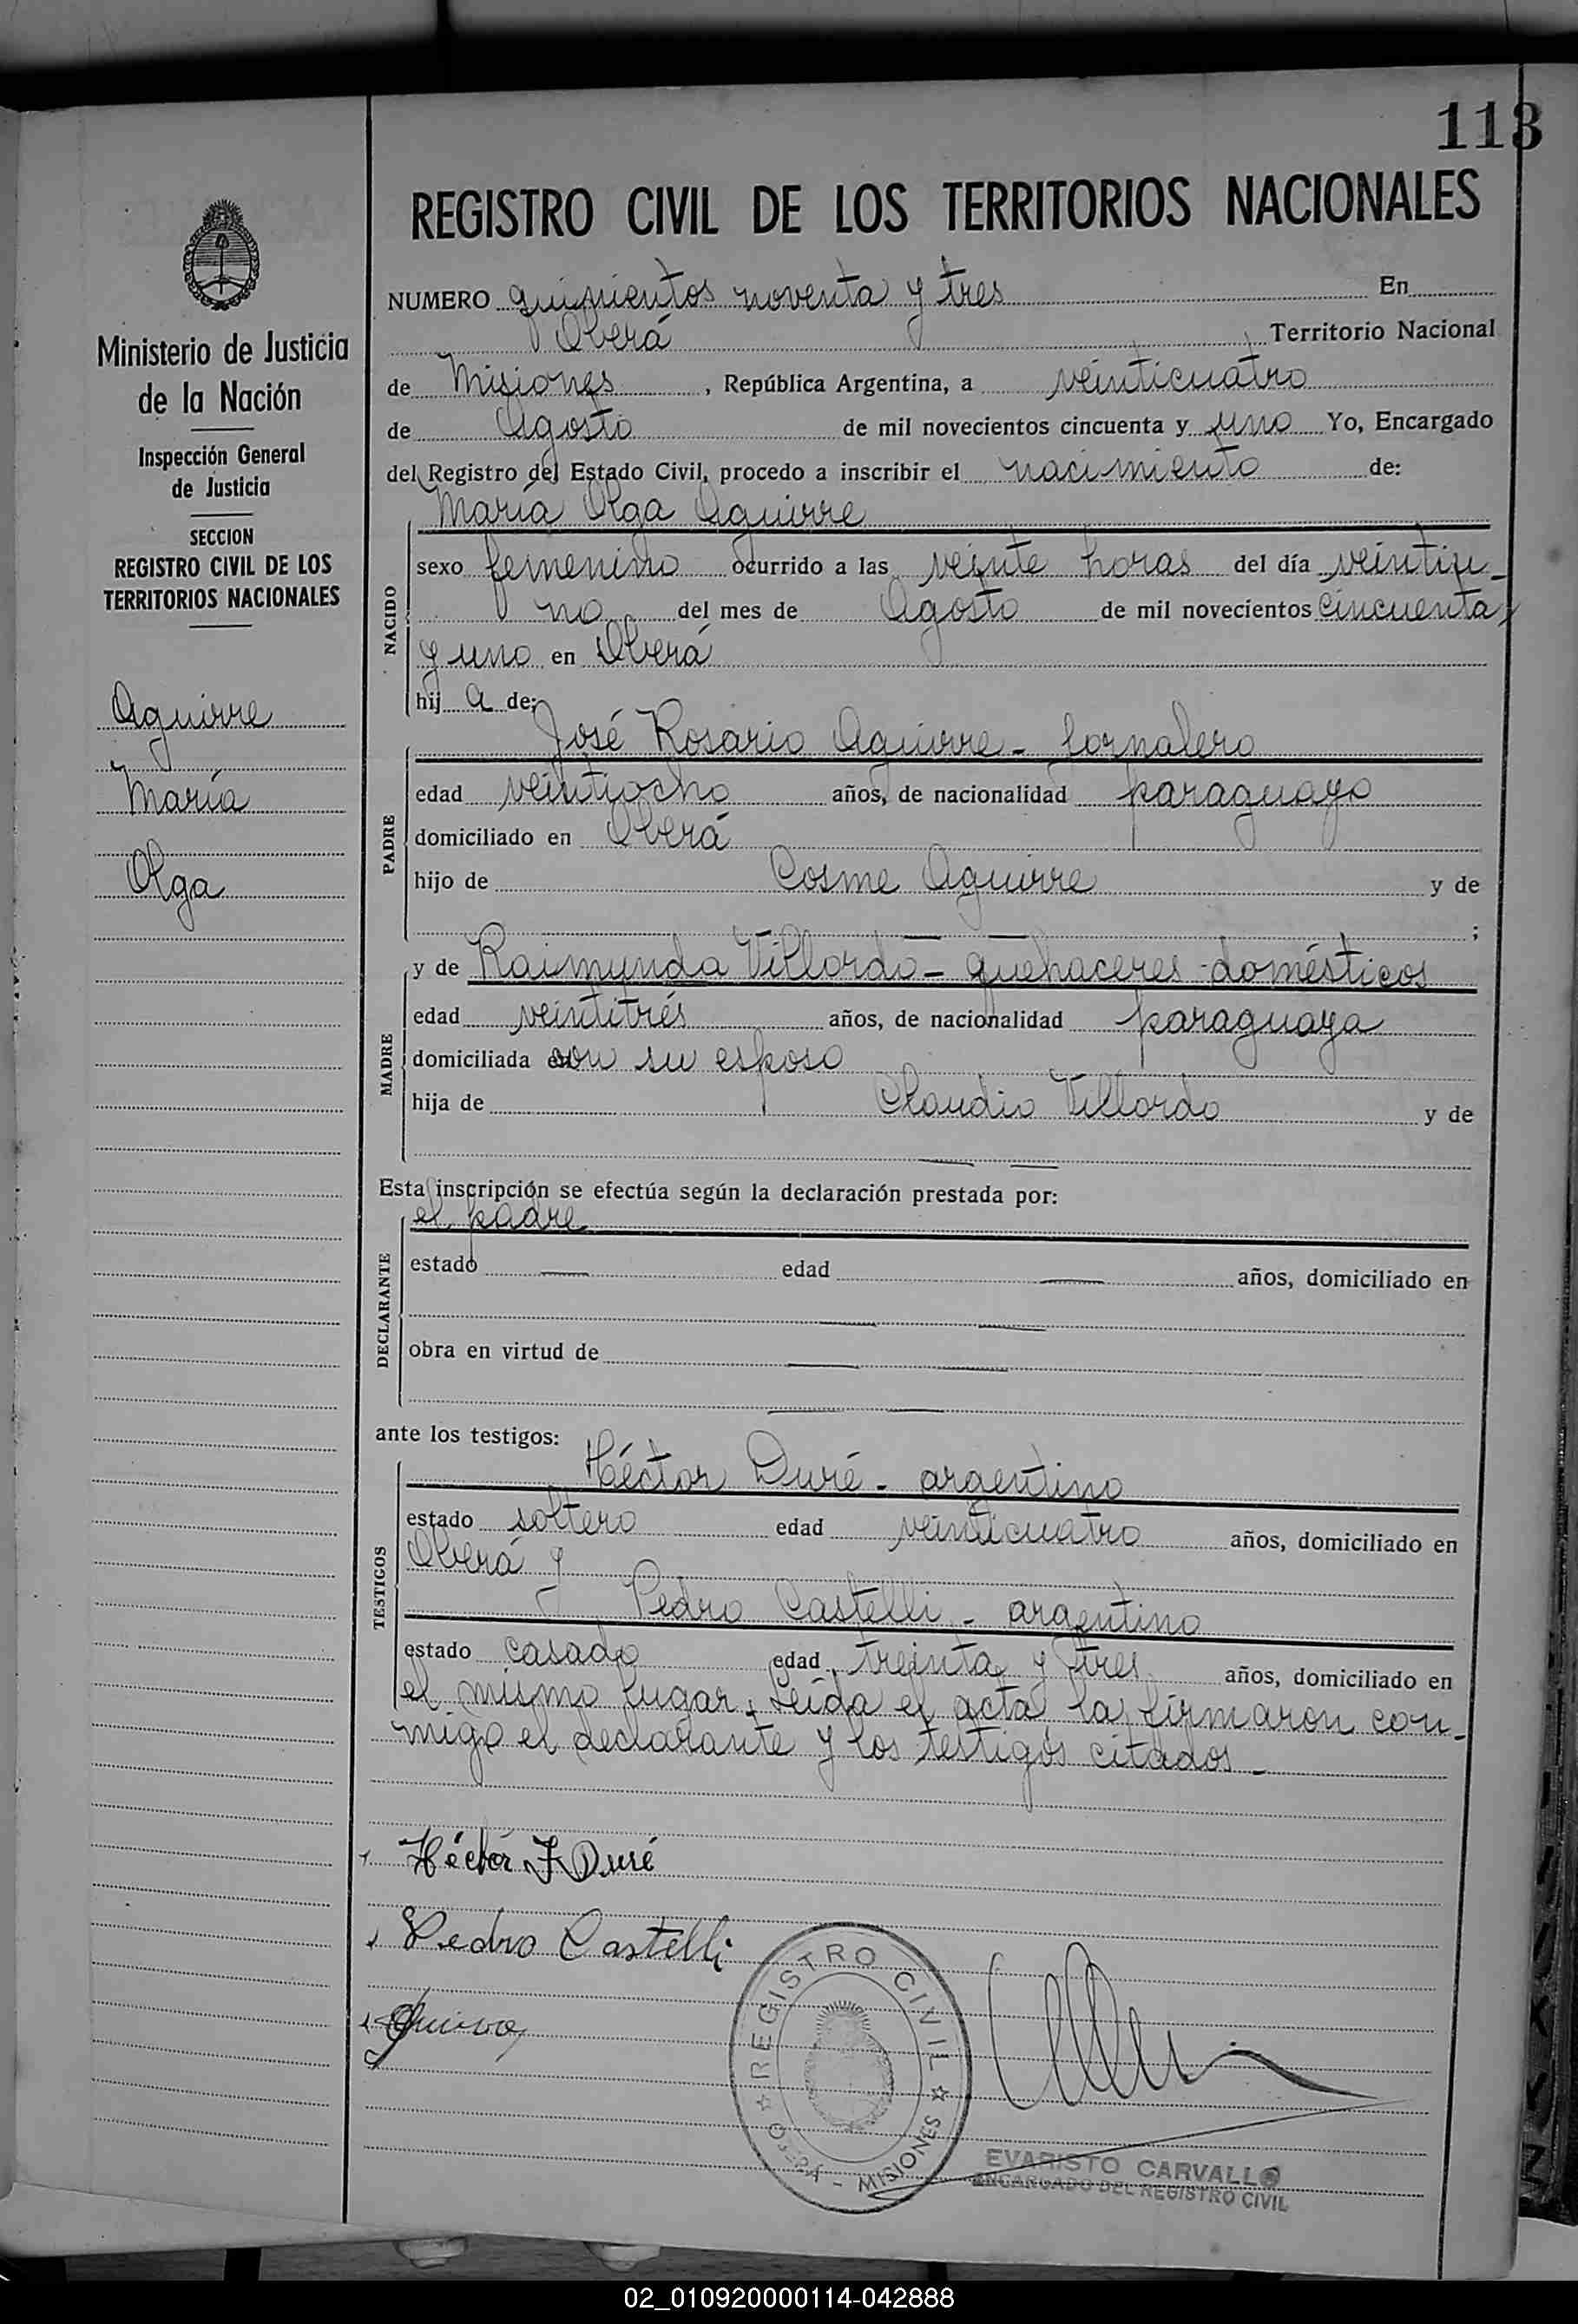 113
REGISTRO CIVIL DE LOS TERRITORIOS NACIONALES
Ministerio de Justicia
de la Nación
Inspección General
de Justicia
SECCION
REGISTRO CIVIL DE LOS
TERRITORIOS NACIONALES
Aguirre
María
Olga
NUMERO quinientos noventa y tres En
Oberá Territorio Nacional
de Misiones, República Argentina, a veinticuatro
de Agosto de mil novecientos cincuenta y uno Yo, Encargado
del Registro del Estado Civil, procedo a inscribir el nacimiento de:
María Olga Aguirre
NACIDO
sexo femenino ocurrido a las veinte horas del día veintiu-
no del mes de Agosto de mil novecientos cincuenta
y uno en Oberá
hij a de:
PADRE
José Rosario Aguirre - Jornalero
edad veintiocho años, de nacionalidad paraguayo
domiciliado en Oberá
hijo de Cosme Aguirre y de
;
MADRE
y de Raimunda Villordo - quehaceres domésticos
edad veintitrés años, de nacionalidad paraguaya
domiciliada en con su esposo
hija de Claudio Villordo y de
Esta inscripción se efectúa según la declaración prestada por:
DECLARANTE
el padre
estado — edad — años, domiciliado en
— —
obra en virtud de — —
— —
ante los testigos:
TESTIGOS
Héctor Duré - argentino
estado soltero edad veinticuatro años, domiciliado en
Oberá y
Pedro Castelli - argentino
estado casado edad treinta y tres años, domiciliado en
el mismo lugar. Leída el acta, la firmaron con-
migo el declarante y los testigos citados -
Héctor J Duré
Pedro Castelli
REGISTRO CIVIL
OBERÁ - MISIONES
EVARISTO CARVALLO
ENCARGADO DEL REGISTRO CIVIL
02_010920000114-042888